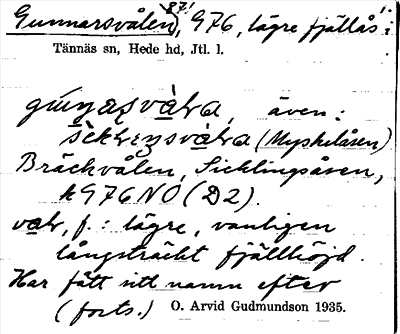 Gunnarsvålen, 976, lägre fjällås i
Tännäs sn, Hede hd, Jtl. l.
även:
(Myskelåsen)
Bräckvålen, Sicklingsåsen,
k 976 NO (D2).
val, f.: lägre, vanligen
långsträckt fjällhöjd.
Har fått sitt namn efter
(forts.) O. Arvid Gudmundson 1935.